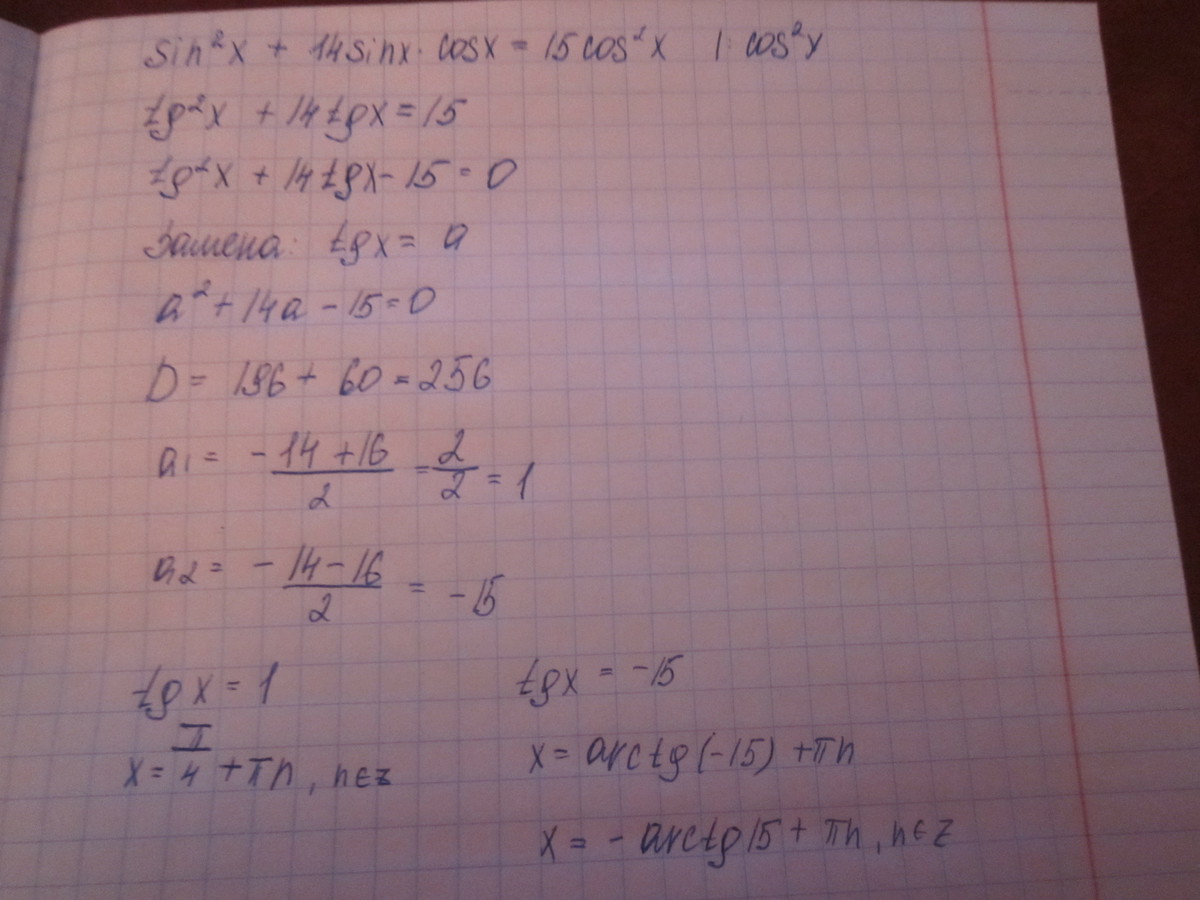 sin²x + 14sinx · cosx = 15cos²x | : cos²x
tg²x + 14tgx = 15
tg²x + 14tgx - 15 = 0
Замена: tgx = a
a² + 14a - 15 = 0
D = 196 + 60 = 256
a₁ = -14 + 16 / 2 = 2 / 2 = 1
a₂ = -14 - 16 / 2 = -15
tgx = 1 tgx = -15
x = π/4 + πn, n∈z x = arctg(-15) + πn
x = - arctg15 + πn, n∈Z